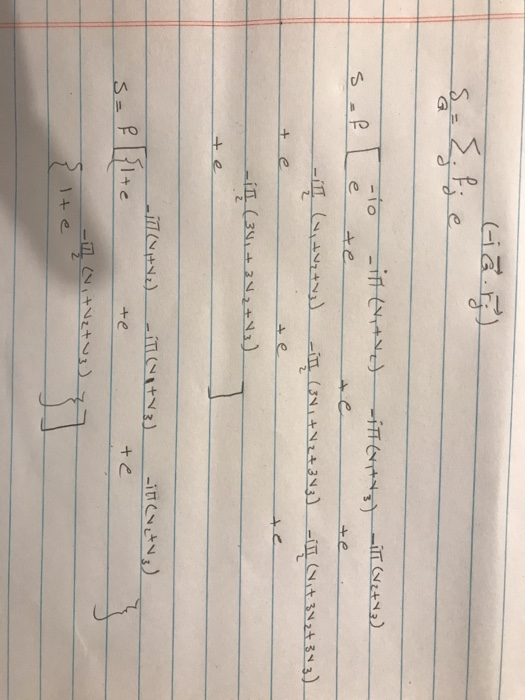 S_G = Σ_j f_j e^(-i G⃗ · r⃗_j)
S = f [ e^-i0 + e^-iπ(v₁+v₂) + e^-iπ(v₁+v₃) + e^-iπ(v₂+v₃)
+ e^-iπ/2 (v₁+v₂+v₃) + e^-iπ/2 (3v₁+v₂+3v₃) + e^-iπ/2 (v₁+3v₂+3v₃)
+ e^-iπ/2 (3v₁+3v₂+v₃) ]
S = f [ { 1+e^-iπ(v₁+v₂) + e^-iπ(v₁+v₃) + e^-iπ(v₂+v₃) }
{ 1+e^-iπ/2 (v₁+v₂+v₃) } ]